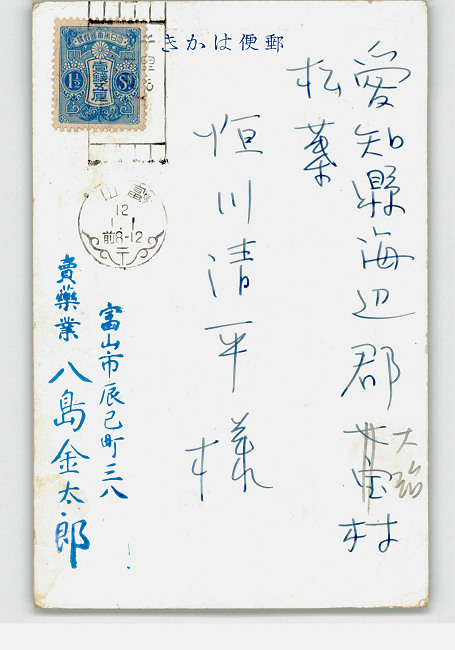 郵便はかき
愛知縣海辺郡七宝村
大治
松葉
恒川清平様
富山市辰巳町三八
賣藥業 八島金太郎
壹錢五厘
1½ Sn
富山
12
1.1
前8-12